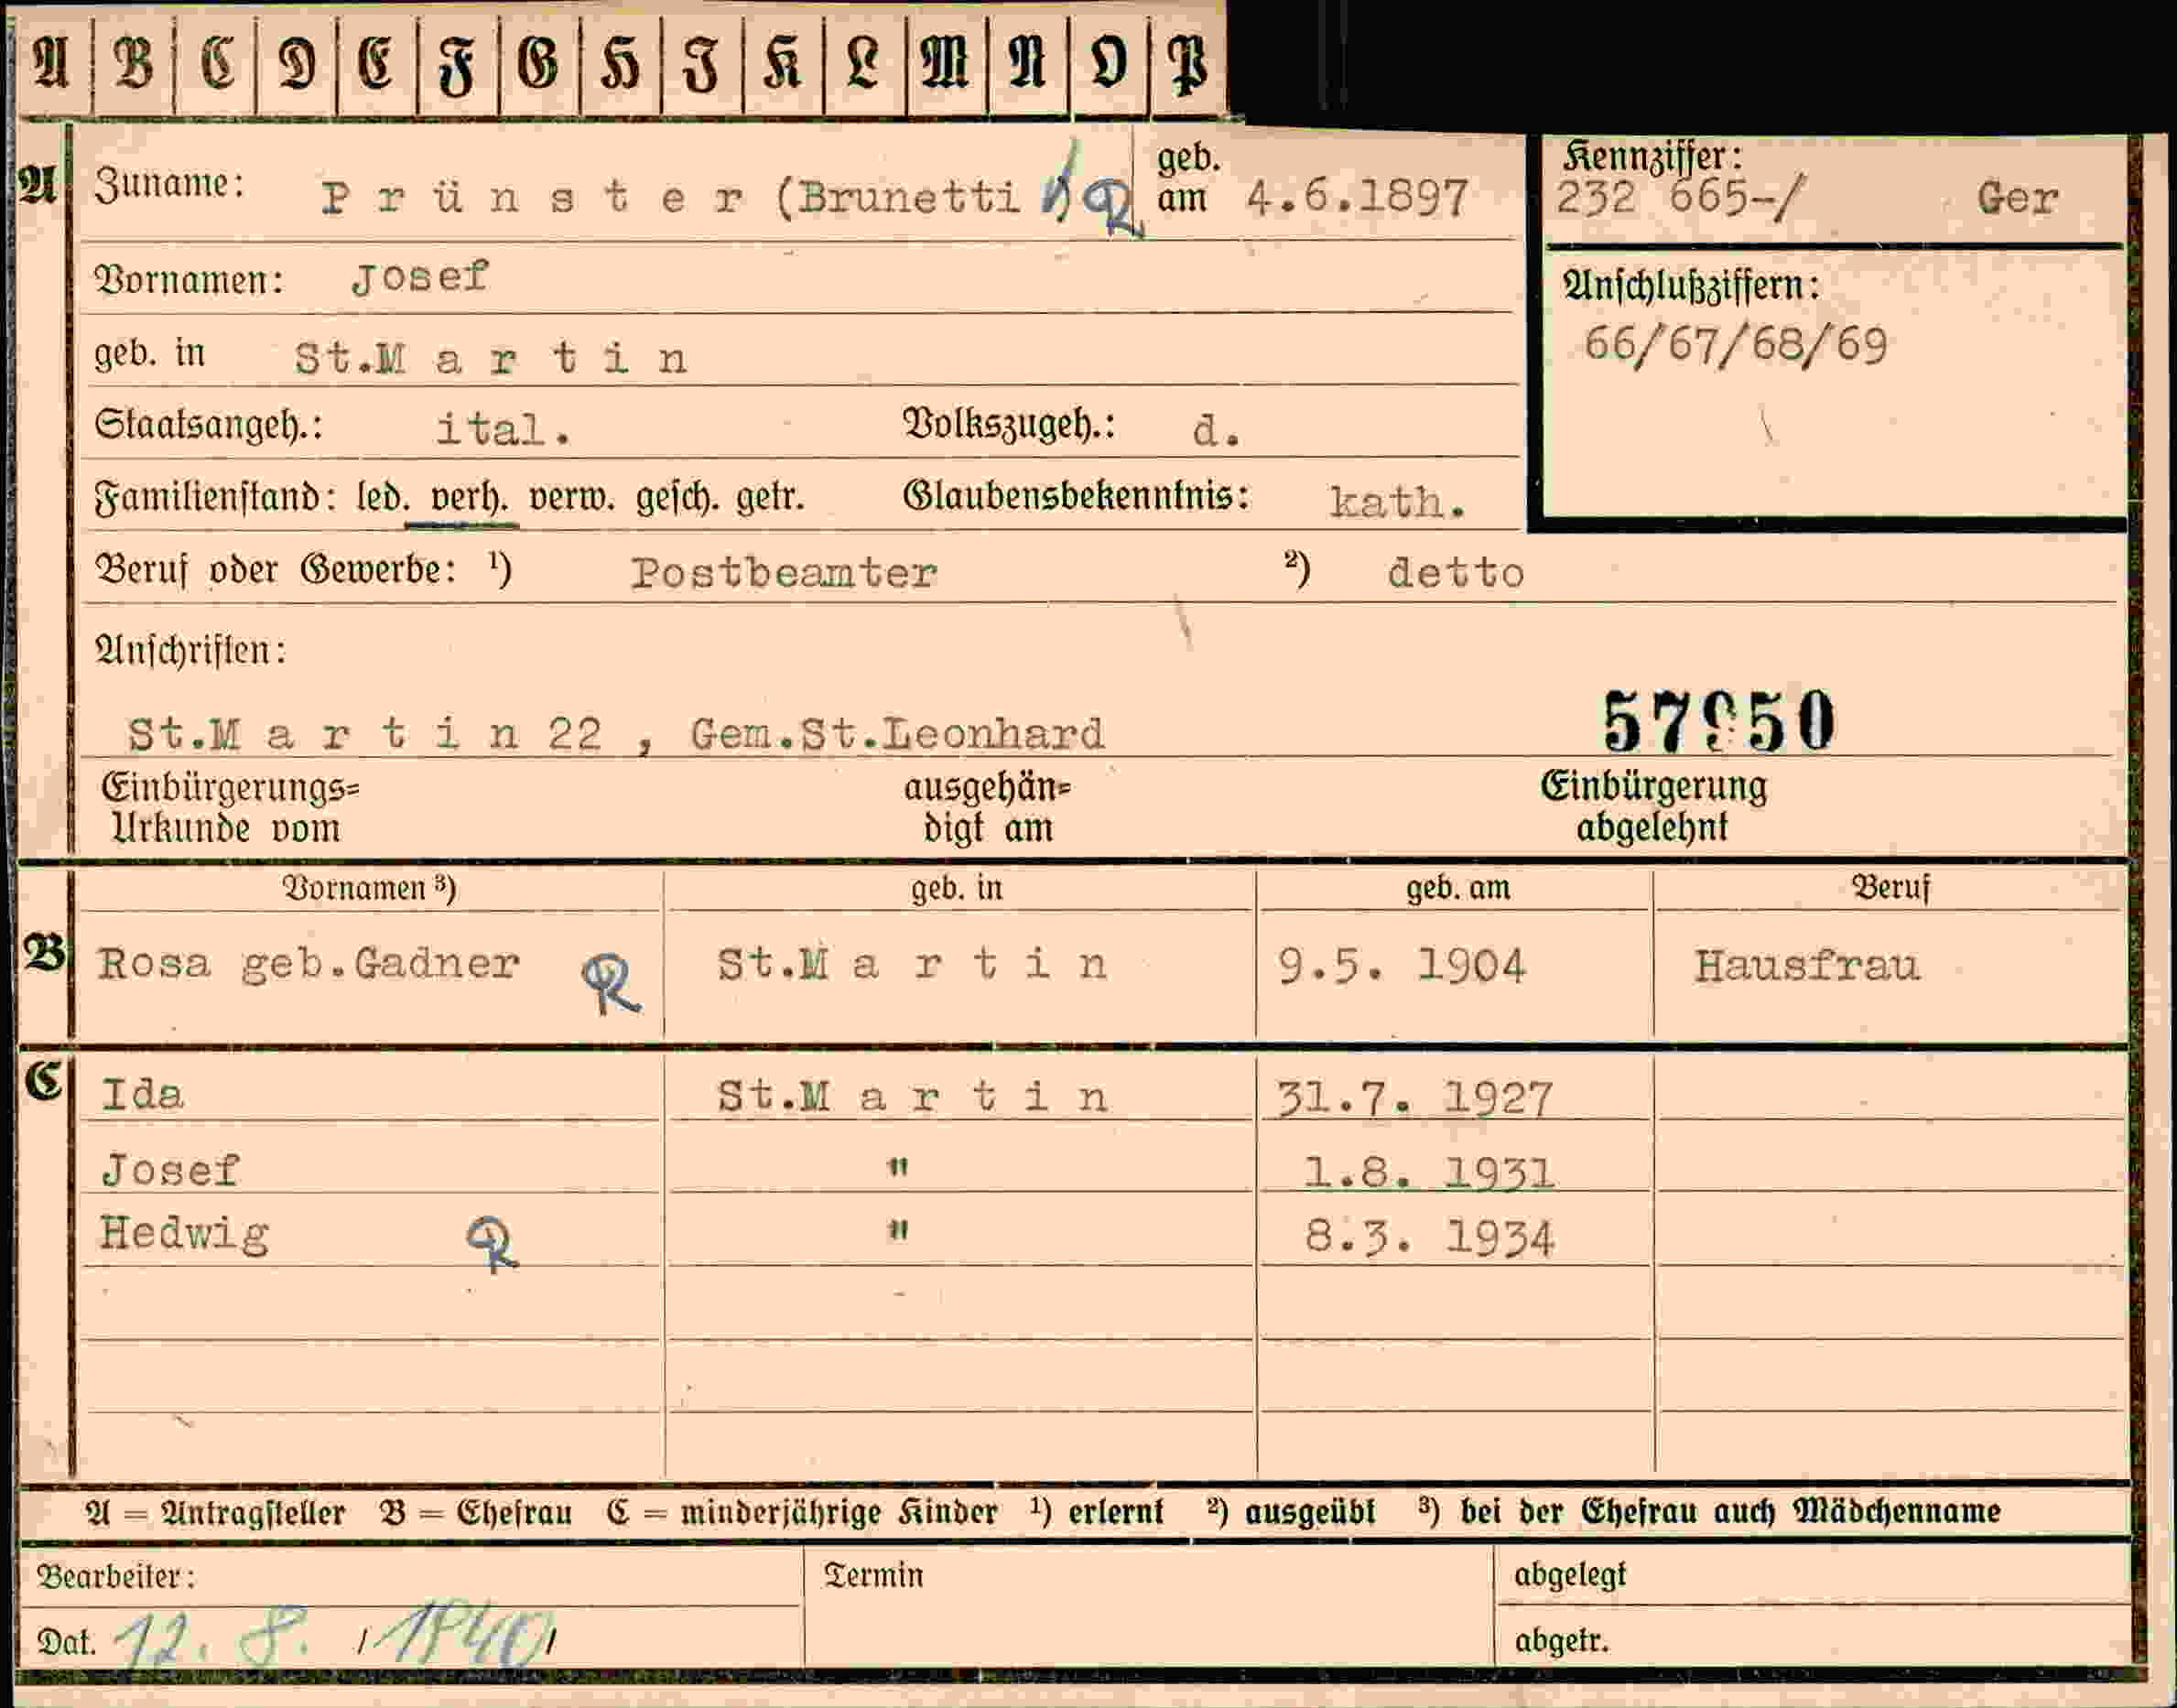 A B C D E F G H I K L M N O P
A Zuname: Prünster (Brunetti) geb. am 4.6.1897
Kennziffer: 232 665-/ Ger
Vornamen: Josef
Anschlußziffern:
66/67/68/69
geb. in St.Martin
Staatsangeh.: ital. Volkszugeh.: d.
Familienstand: led. verh. verw. gesch. getr. Glaubensbekenntnis: kath.
Beruf oder Gewerbe: ¹) Postbeamter ²) detto
Anschriften:
St.Martin 22 , Gem.St.Leonhard
Einbürgerungs= ausgehän= Einbürgerung
Urkunde vom digt am abgelehnt
Vornamen ³) geb. in geb. am Beruf
B Rosa geb.Gadner R St.Martin 9.5. 1904 Hausfrau
C Ida St.Martin 31.7. 1927
Josef " 1.8. 1931
Hedwig R " 8.3. 1934
A = Antragsteller B = Ehefrau C = minderjährige Kinder ¹) erlernt ²) ausgeübt ³) bei der Ehefrau auch Mädchenname
Bearbeiter: Termin abgelegt
Dat. 12. 8. /1940/ abgetr.